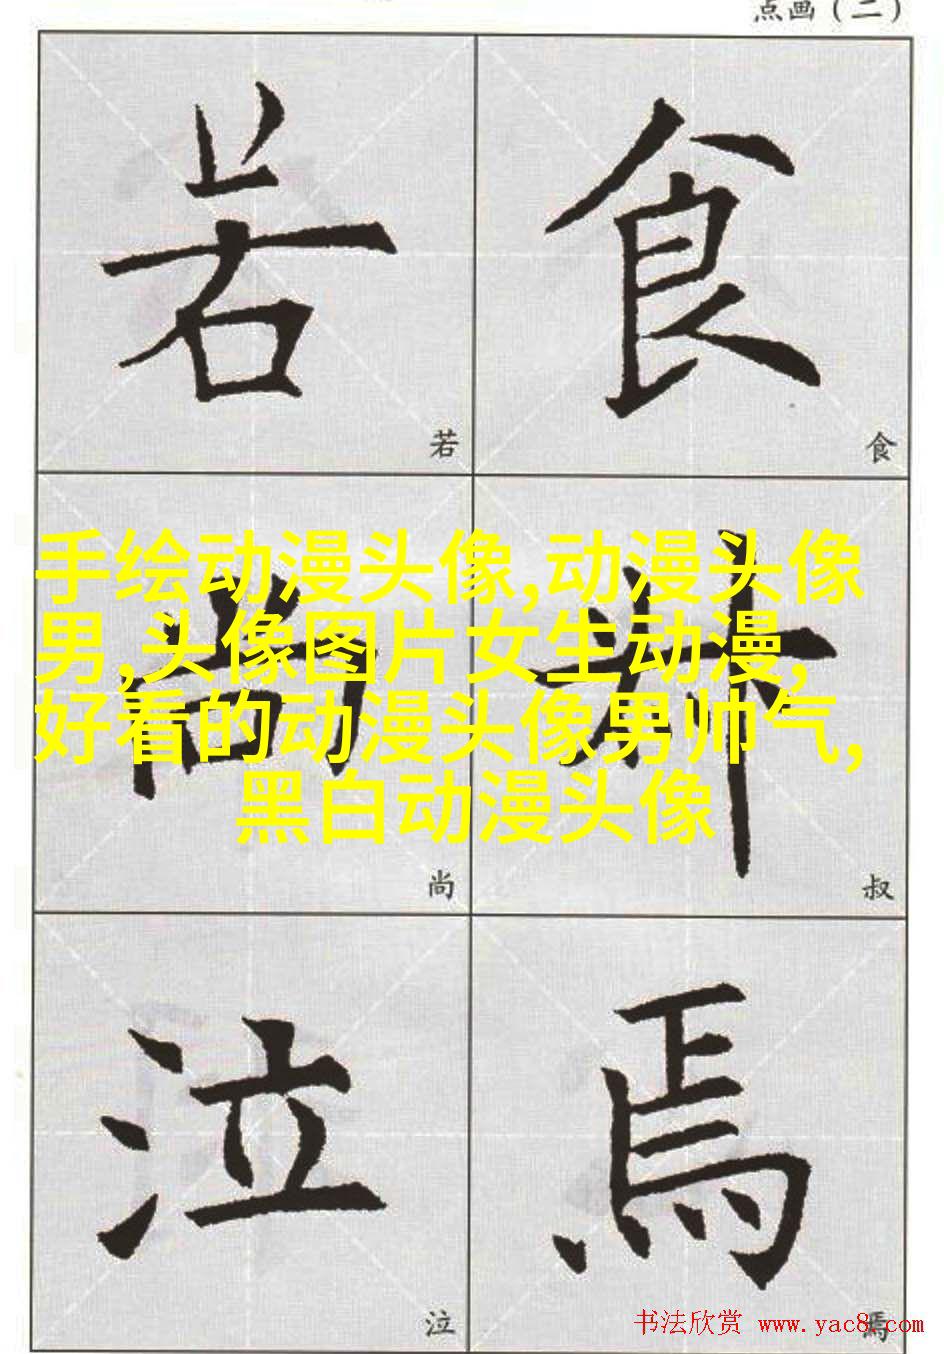 点画（二）
若 食
若 食
手绘动漫头像,动漫头像
男,头像图片女生动漫,
好看的动漫头像男帅气,
黑白动漫头像
尚 叔
尚 叔
泣 焉
泣 焉
书法欣赏 www.yac8.com